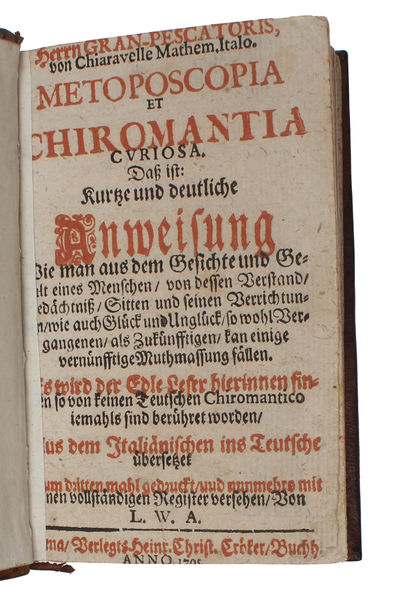 Herrn GRAN-PESCATORIS,
von Chiaravelle Mathem. Italo.
METOPOSCOPIA
ET
CHIROMANTIA
CVRIOSA.
Daß ist:
Kurtze und deutliche
Anweisung
Wie man aus dem Gesichte und Ge-
elt eines Menschen / von dessen Verstand /
edächtniß / Sitten und seinen Verrichtun-
n / wie auch Glück und Unglück / so wohl Ver-
gangenen / als Zukünfftigen / kan einige
vernünfftige Muthmassung fällen.
s wird der Edle Leser hierinnen fin-
en so von keinen Teutschen Chiromantico
iemahls sind berühret worden /
us dem Italiänischen ins Teutsche
übersetzet
um dritten mahl gedruckt / und nunmehro mit
nen vollständigen Register versehen / Von
L. W. A.
ena / Verlegts Heinr. Christ. Cröker / Buchh.
ANNO 1705